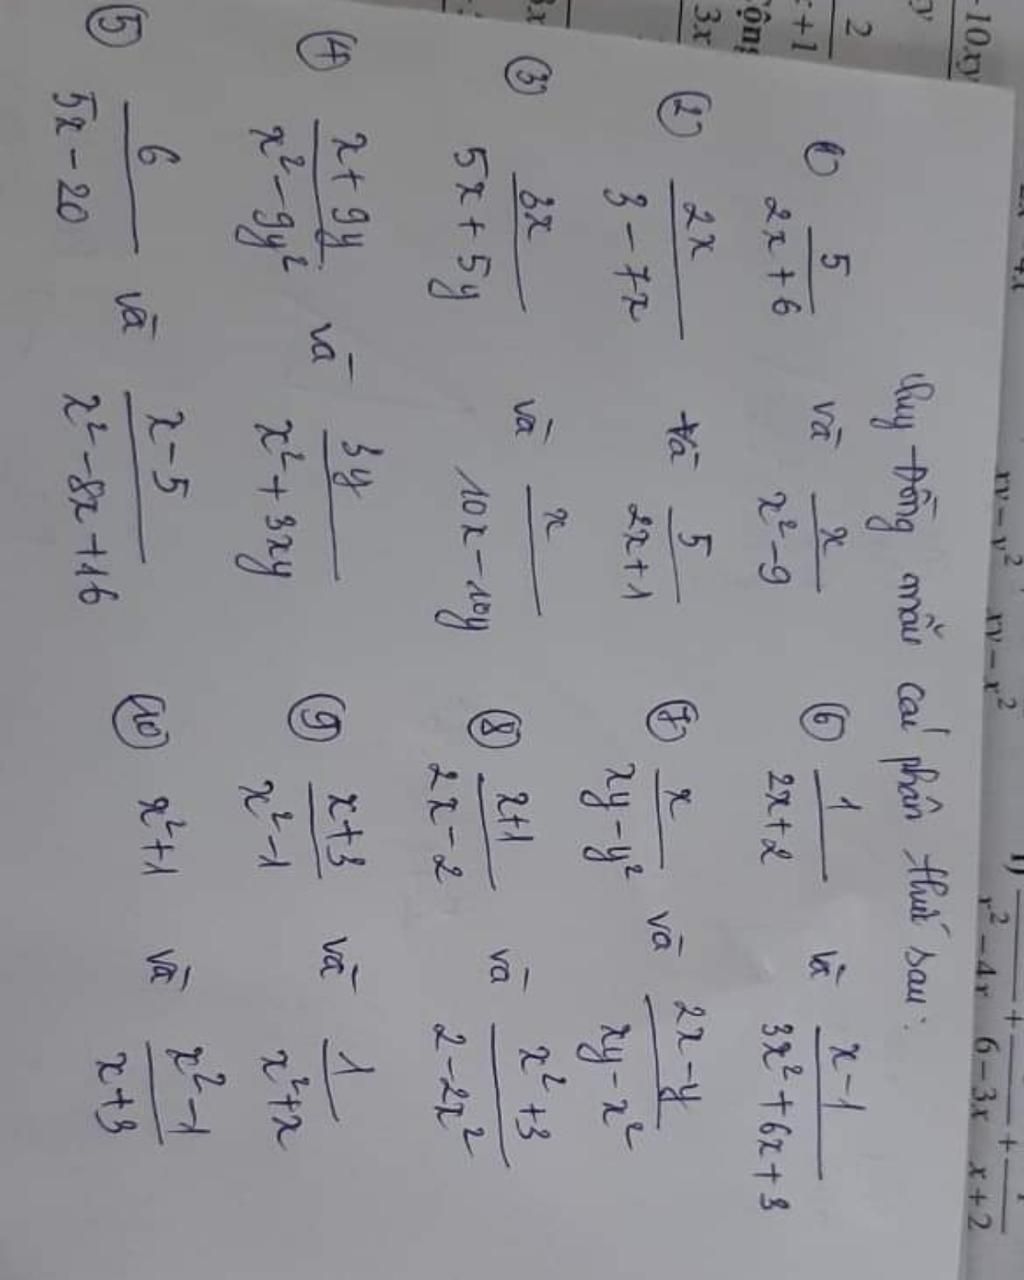 Quy đồng mẫu các phân thức sau:
① 5/(2x+6) và x/(x²-9)
② 2x/(3-7x) và 5/(2x+1)
③ 3x/(5x+5y) và x/(10x-10y)
④ (x+9y)/(x²-9y²) và 3y/(x²+3xy)
⑤ 6/(5x-20) và (x-5)/(x²-8x+16)
⑥ 1/(2x+2) và (x-1)/(3x²+6x+3)
⑦ x/(xy-y²) và (2x-y)/(xy-x²)
⑧ (x+1)/(2x-2) và (x²+3)/(2-2x²)
⑨ (x+3)/(x²-1) và 1/(x²+x)
⑩ x²+1 và (x²-1)/(x+3)
-10xy
2
+1
3x
xy-y²
xy-x²
x²-4x
6-3x
x+2